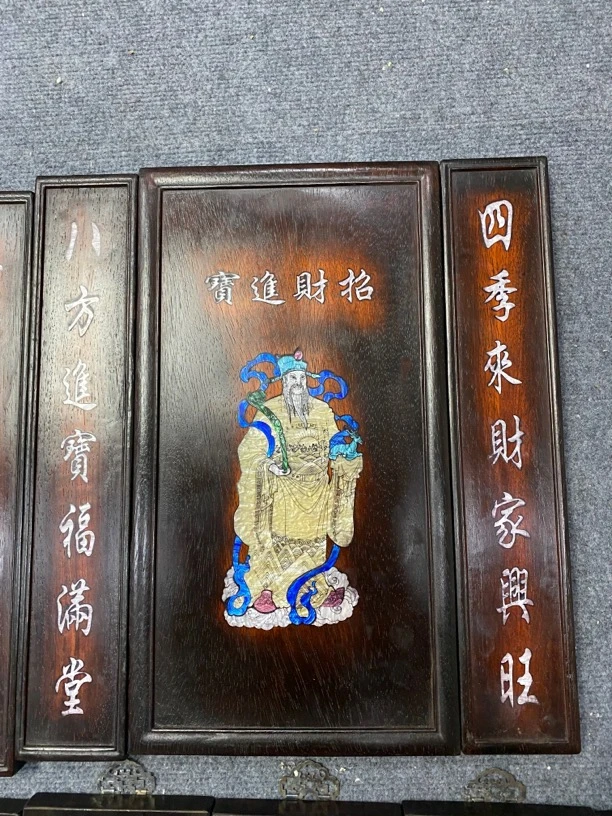 招財進寶
四季來財家興旺
八方進寶福滿堂